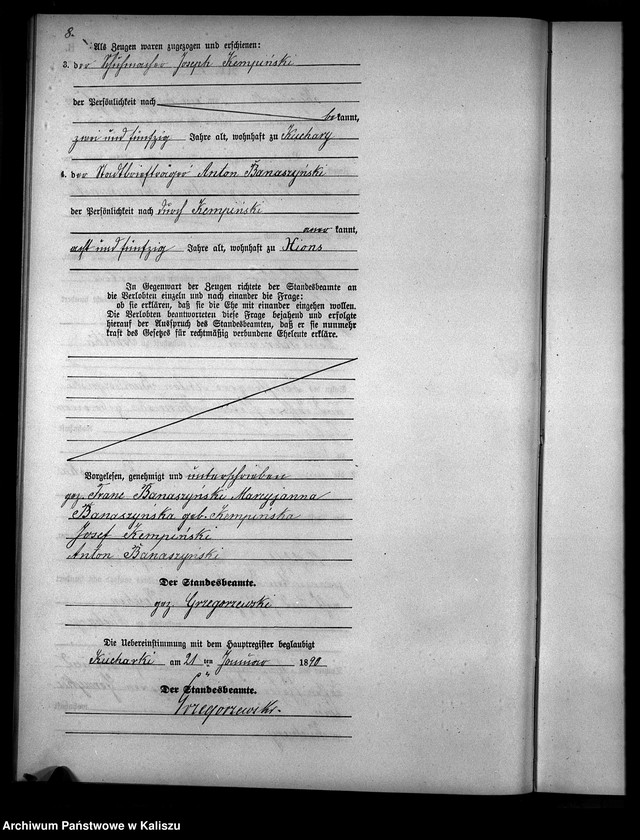 8.
Als Zeugen waren zugezogen und erschienen:
3. der Schuhmacher Joseph Kempiński
der Persönlichkeit nach
bekannt,
zwei und fünfzig Jahre alt, wohnhaft zu Kuchary
4. der Stadtbriefträger Anton Banaszyński
der Persönlichkeit nach durch Kempiński
aner kannt,
acht und fünfzig Jahre alt, wohnhaft zu Xions
In Gegenwart der Zeugen richtete der Standesbeamte an
die Verlobten einzeln und nach einander die Frage:
ob sie erklären, daß sie die Ehe mit einander eingehen wollen.
Die Verlobten beantworteten diese Frage bejahend und erfolgte
hierauf der Ausspruch des Standesbeamten, daß er sie nunmehr
kraft des Gesetzes für rechtmäßig verbundene Eheleute erkläre.
Vorgelesen, genehmigt und unterschrieben
gez. Franc Banaszyński Marcyjanna
Banaszyńska geb. Kempińska
Josef Kempiński
Anton Banaszynski
Der Standesbeamte.
gez. Grzegorzewski
Die Uebereinstimmung mit dem Hauptregister beglaubigt
Kucharki am 21 ten Januar 1890
Der Standesbeamte.
Grzegorzewski.
Archiwum Państwowe w Kaliszu